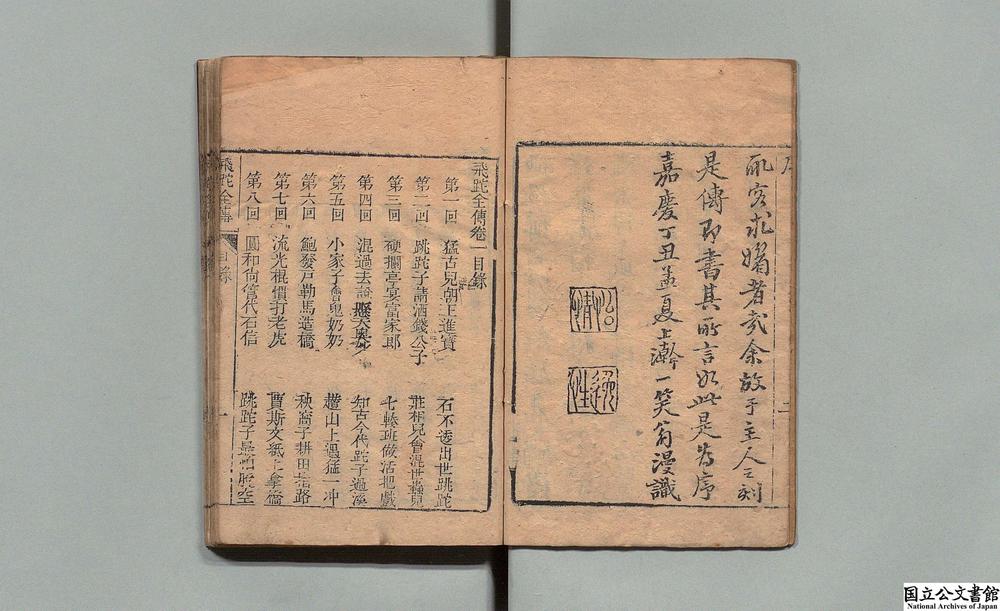 序
而客求媚者哉余故于主人之刻
是傳即書其所言如此是為序
嘉慶丁丑孟夏上澣一笑翁漫識
飛跎全傳卷一目錄
第一回 猛古兒朝王進寶 石不透出世跳跎
第二回 跳跎子請酒錢公子 莊相兒會混世蟲兒
第三回 硬擱亭宴富家郎 七輳班做活把戲
第四回 混過去說騷天奧少 知古今代跎子過溪
第五回 小家子會鬼奶奶 趲山上遇猛一冲
第六回 鮑發戶勒馬造橋 秋喬子耕田指路
第七回 流光棍慣打老虎 賈斯文紙上拿喬
第八回 圓和尚管代石信 跳跎子最怕脫空
飛跎全傳
目錄
一
国立公文書館
National Archives of Japan